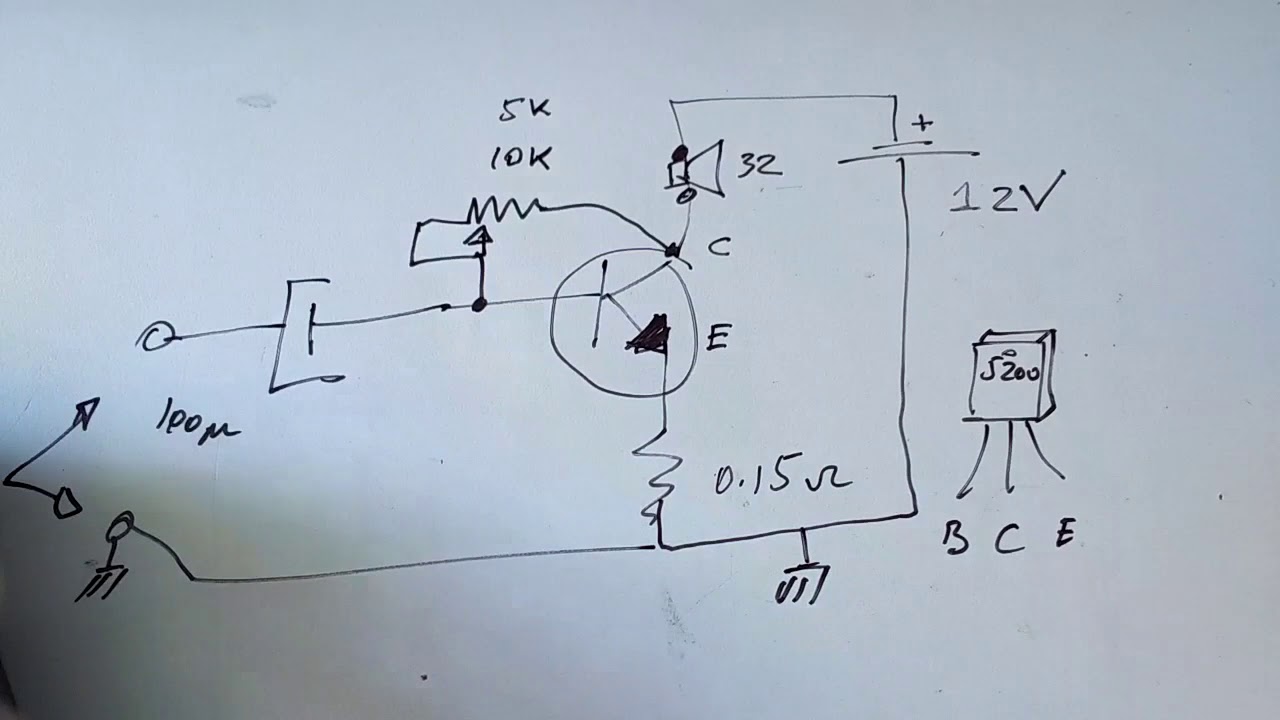 5K
10K
32
+
12V
C
E
100µ
0.15Ω
5200
B C E